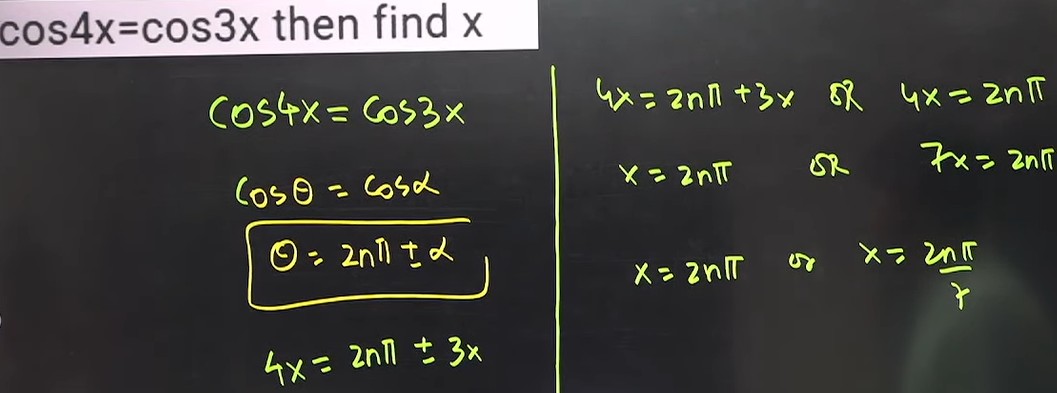 cos4x=cos3x then find x
cos4x = cos3x
cosθ = cosα
θ = 2nπ ± α
4x = 2nπ ± 3x
4x = 2nπ + 3x OR 4x = 2nπ
x = 2nπ OR 7x = 2nπ
x = 2nπ or x = 2nπ/7